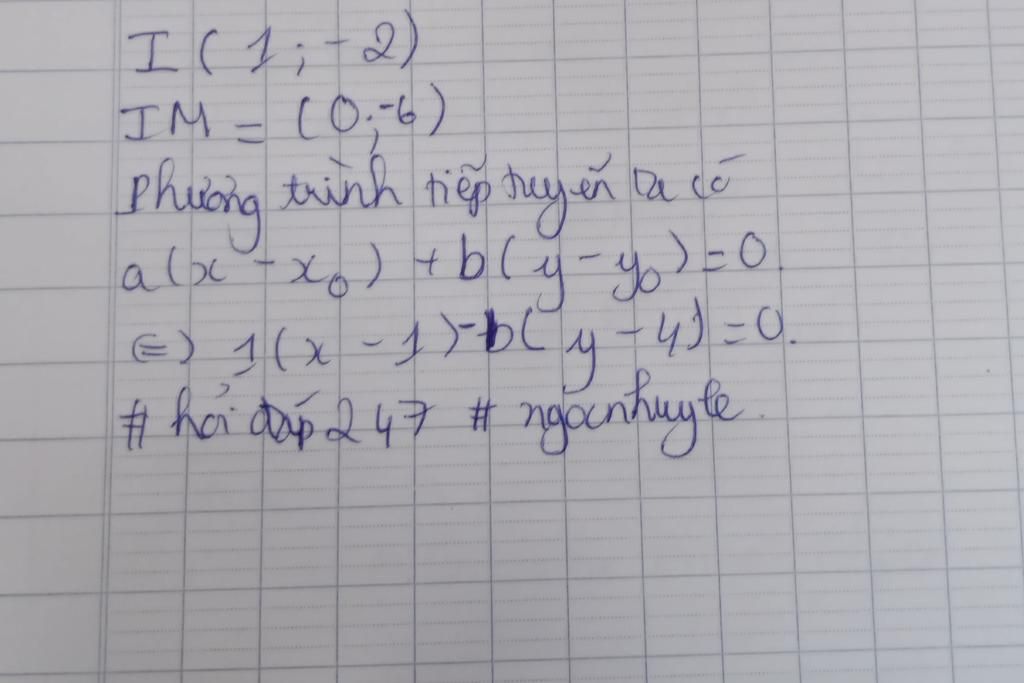 I ( 1 ; - 2 )
IM = ( 0 ; -6 )
Phương trình tiếp tuyến ta có
a ( x - x₀ ) + b ( y - y₀ ) = 0.
⇔ 1 ( x - 1 ) - b ( y - 4 ) = 0.
# hỏi đáp 247 # ngocnhuyle.